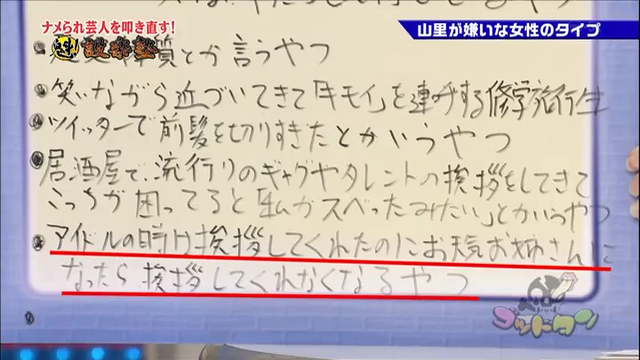 ナメられ芸人を叩き直す!
山里が嫌いな女性のタイプ
質とか言うやつ
笑いながら近づいてきて「キモイ」を連呼する修学旅行生
ツイッターで前髪を切りすぎたとかいうやつ
居酒屋で、流行りのギャグやタレントの挨拶をしてきて
こっちが困ってると「私がスベったみたい」とかいうやつ
アイドルの時は挨拶してくれたのにお天気お姉さんに
なったら挨拶してくれなくなるやつ
ゴッドタン